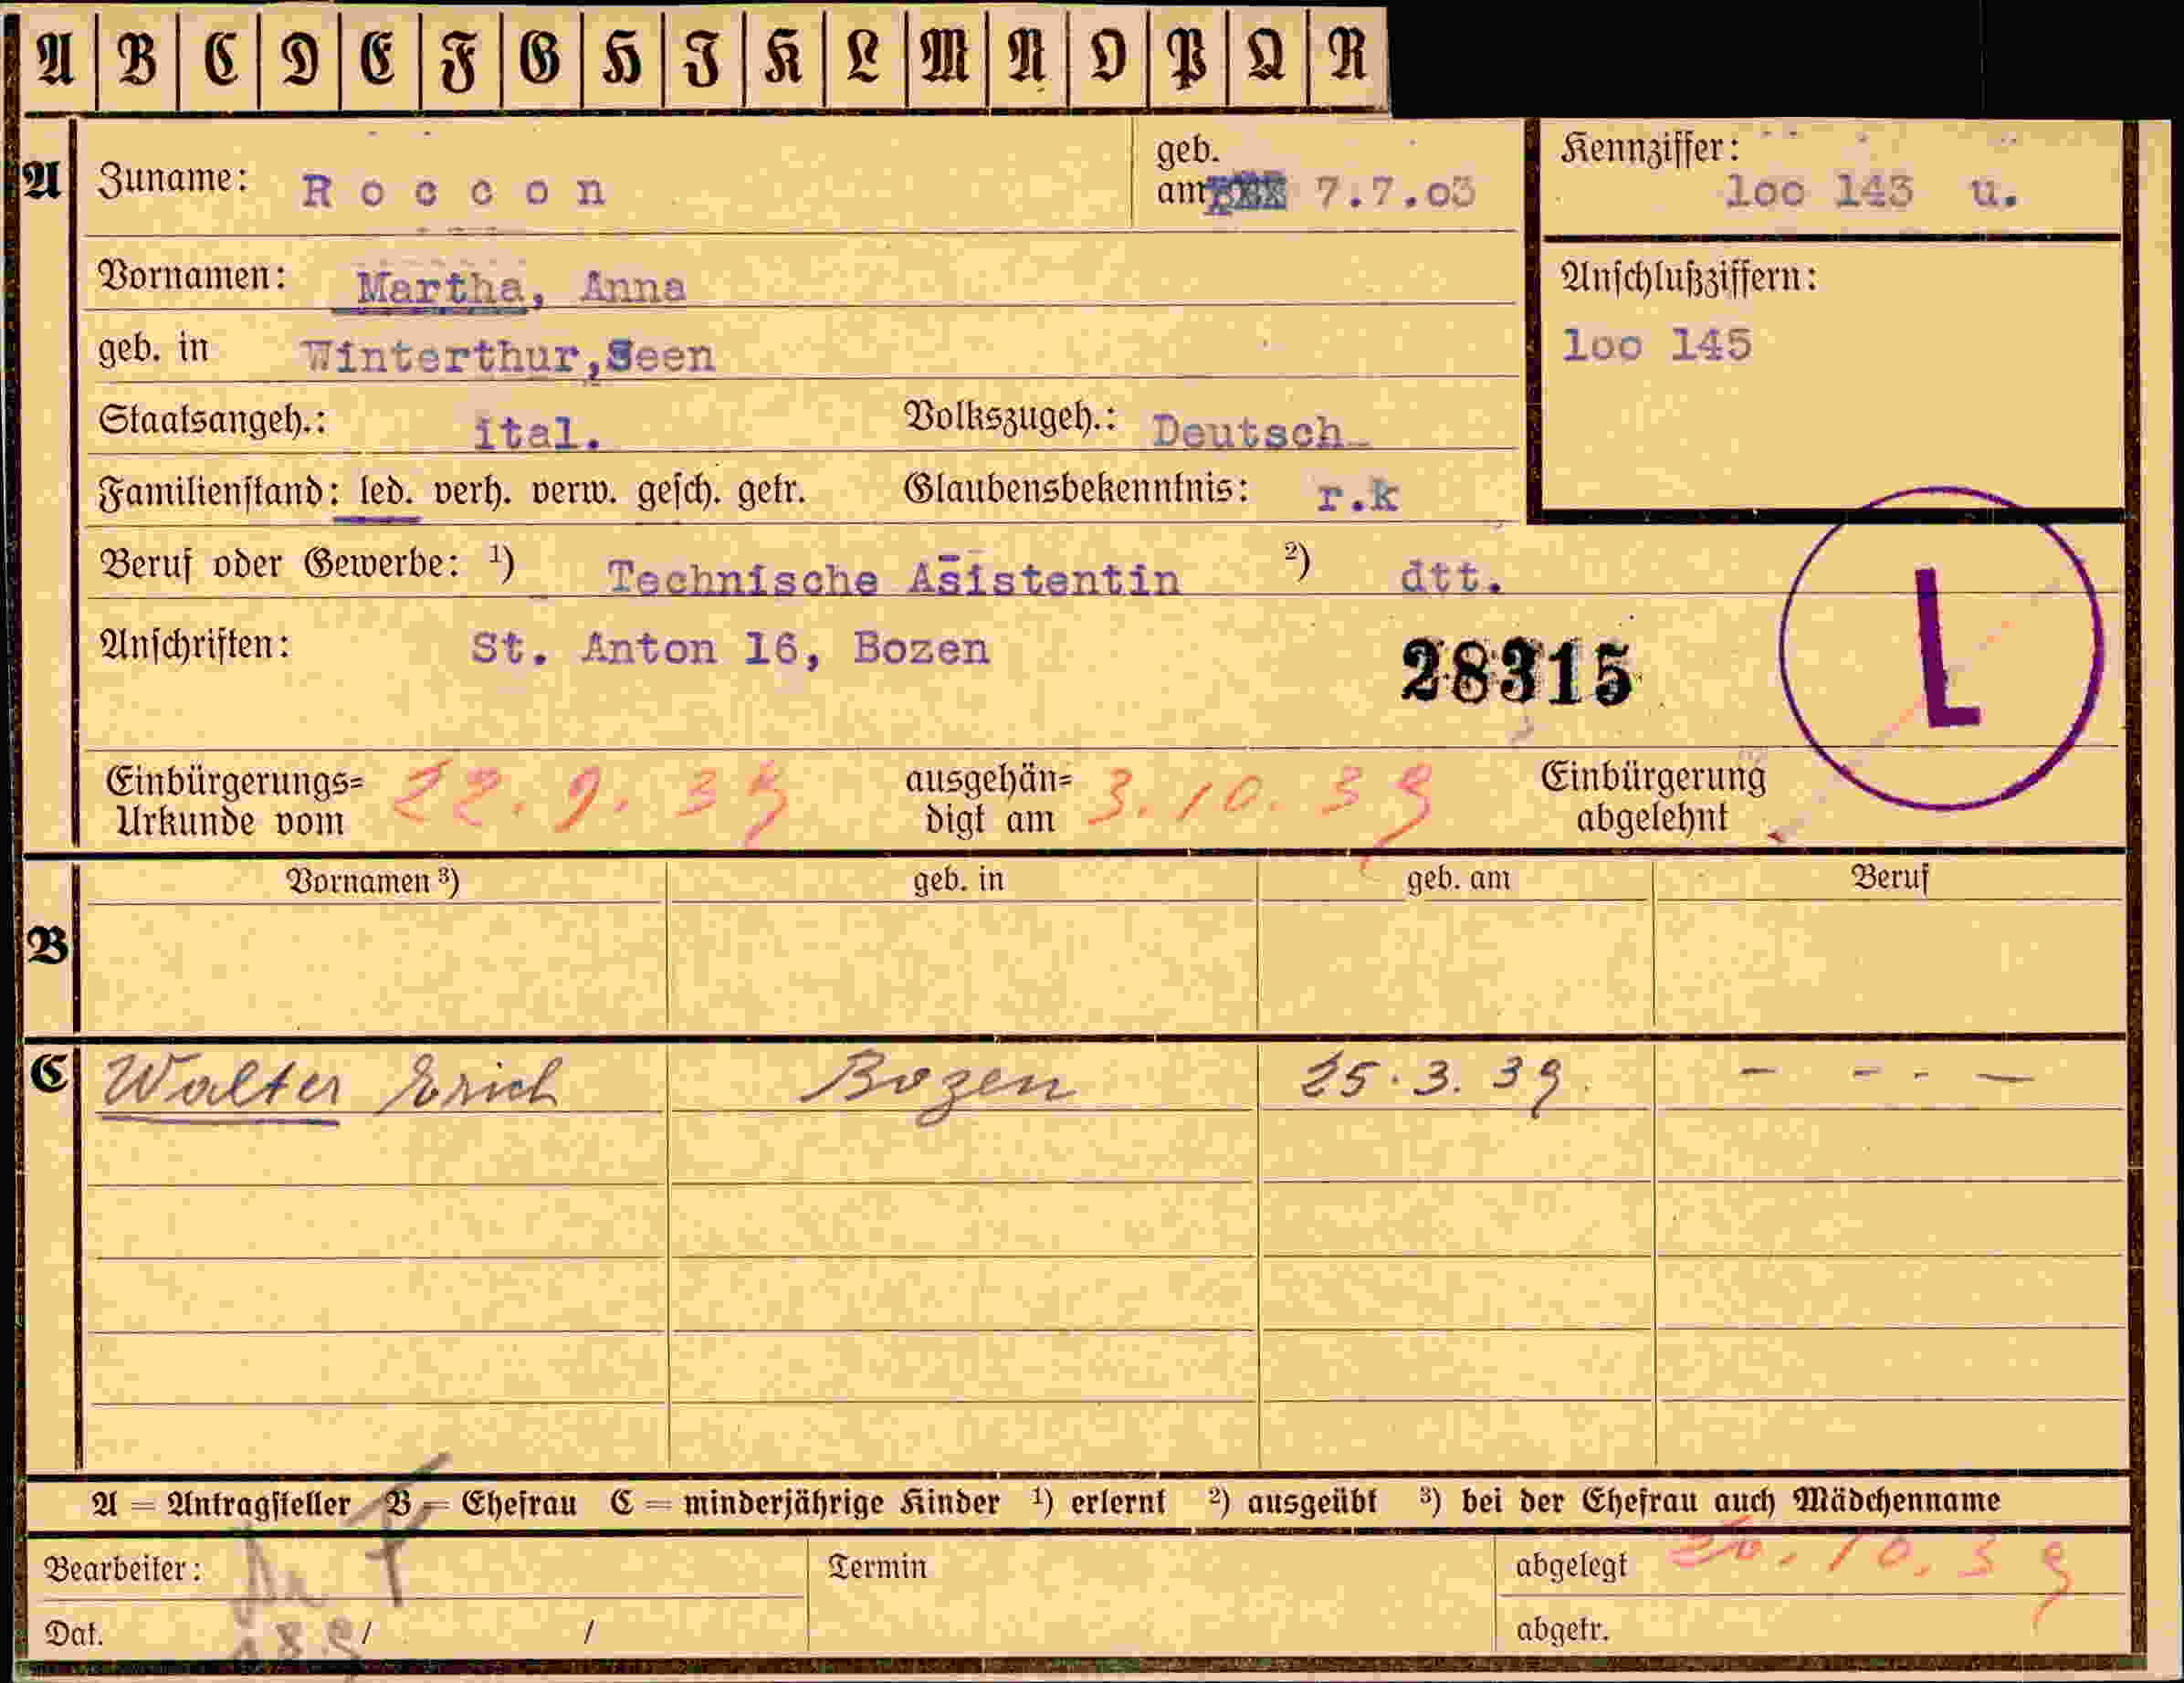 A B C D E F G H I K L M N O P Q R
A Zuname: Roccon geb. am 7.7.03 Kennziffer: loo 143 u.
Vornamen: Martha, Anna Anschlußziffern:
geb. in Winterthur,Seen loo 145
Staatsangeh.: ital. Volkszugeh.: Deutsch
Familienstand: led. verh. verw. gesch. getr. Glaubensbekenntnis: r.k
Beruf oder Gewerbe: ¹) Technische Asistentin ²) dtt.
Anschriften: St. Anton 16, Bozen 28315 L
Einbürgerungs= 22.9.39 ausgehän= 3.10.39 Einbürgerung
Urkunde vom digt am abgelehnt
Vornamen ³) geb. in geb. am Beruf
B
C Walter Erich Bozen 25.3.39. - - - —
A = Antragsteller B = Ehefrau C = minderjährige Kinder ¹) erlernt ²) ausgeübt ³) bei der Ehefrau auch Mädchenname
Bearbeiter: Termin abgelegt 26.10.39
Dat. / / abgetr.